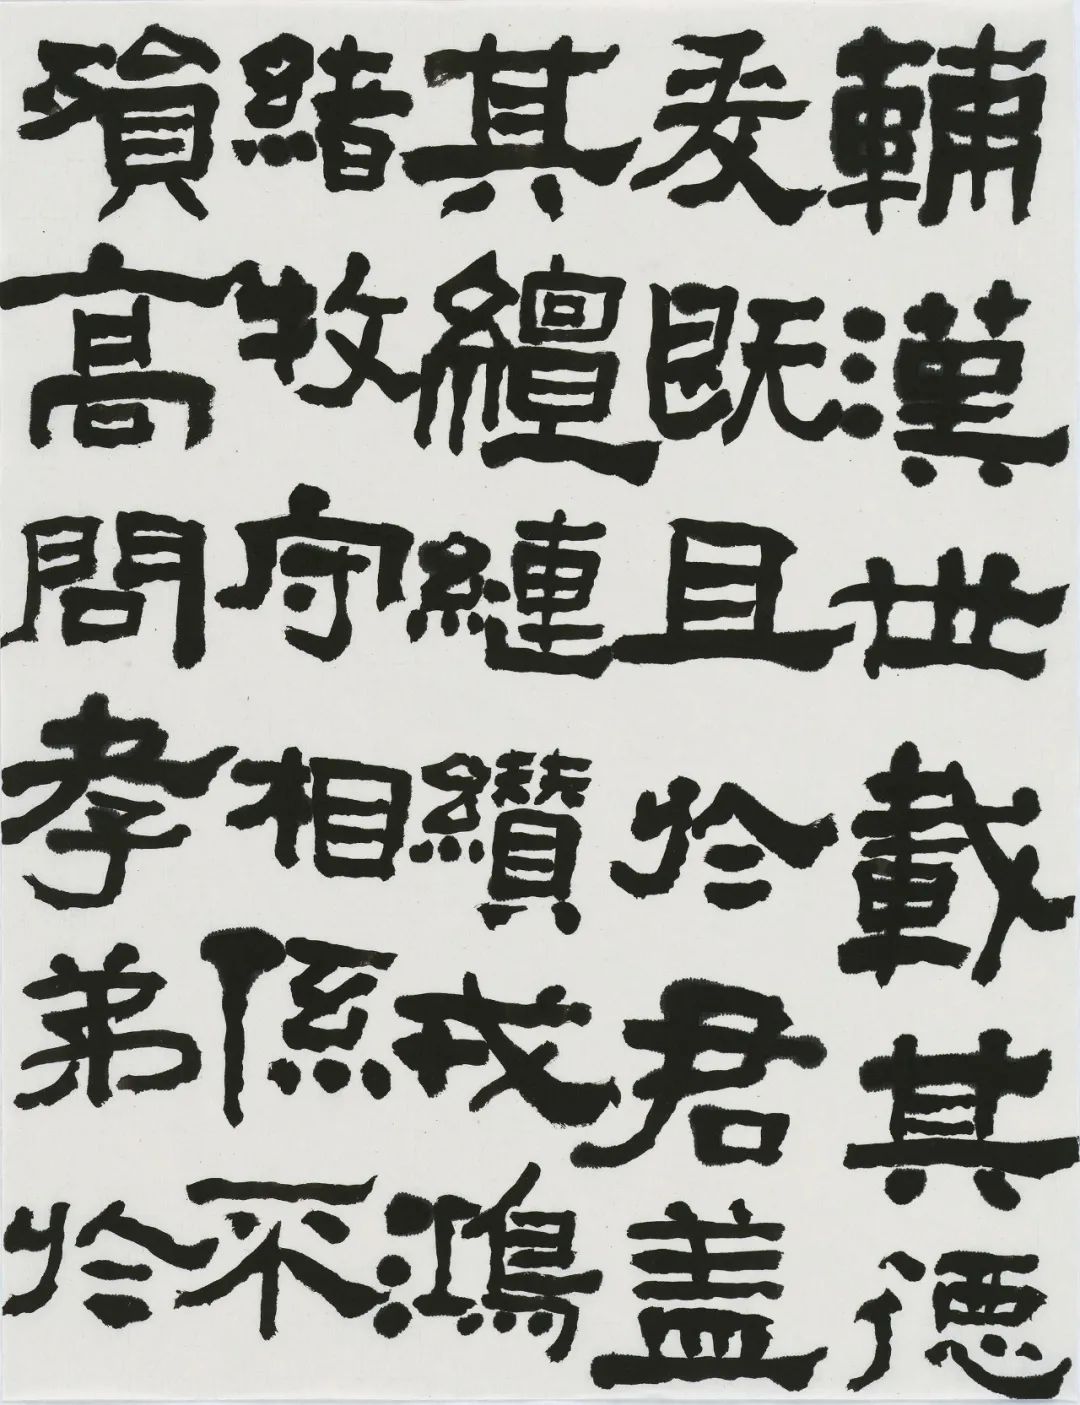 輔漢世載其德
爰既且於君盖
其繵縺纘戎鴻
緒牧守相係不
殞高問孝弟於